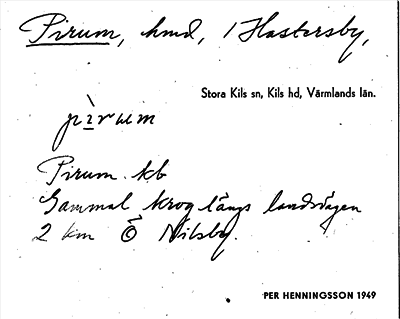 Pirum, hmd, i Hastersby,
Stora Kils sn, Kils hd, Värmlands län.
pìrum
Pirum kb
Gammal krog längs landsvägen
2 km Ö Nilsby.
PER HENNINGSSON 1949